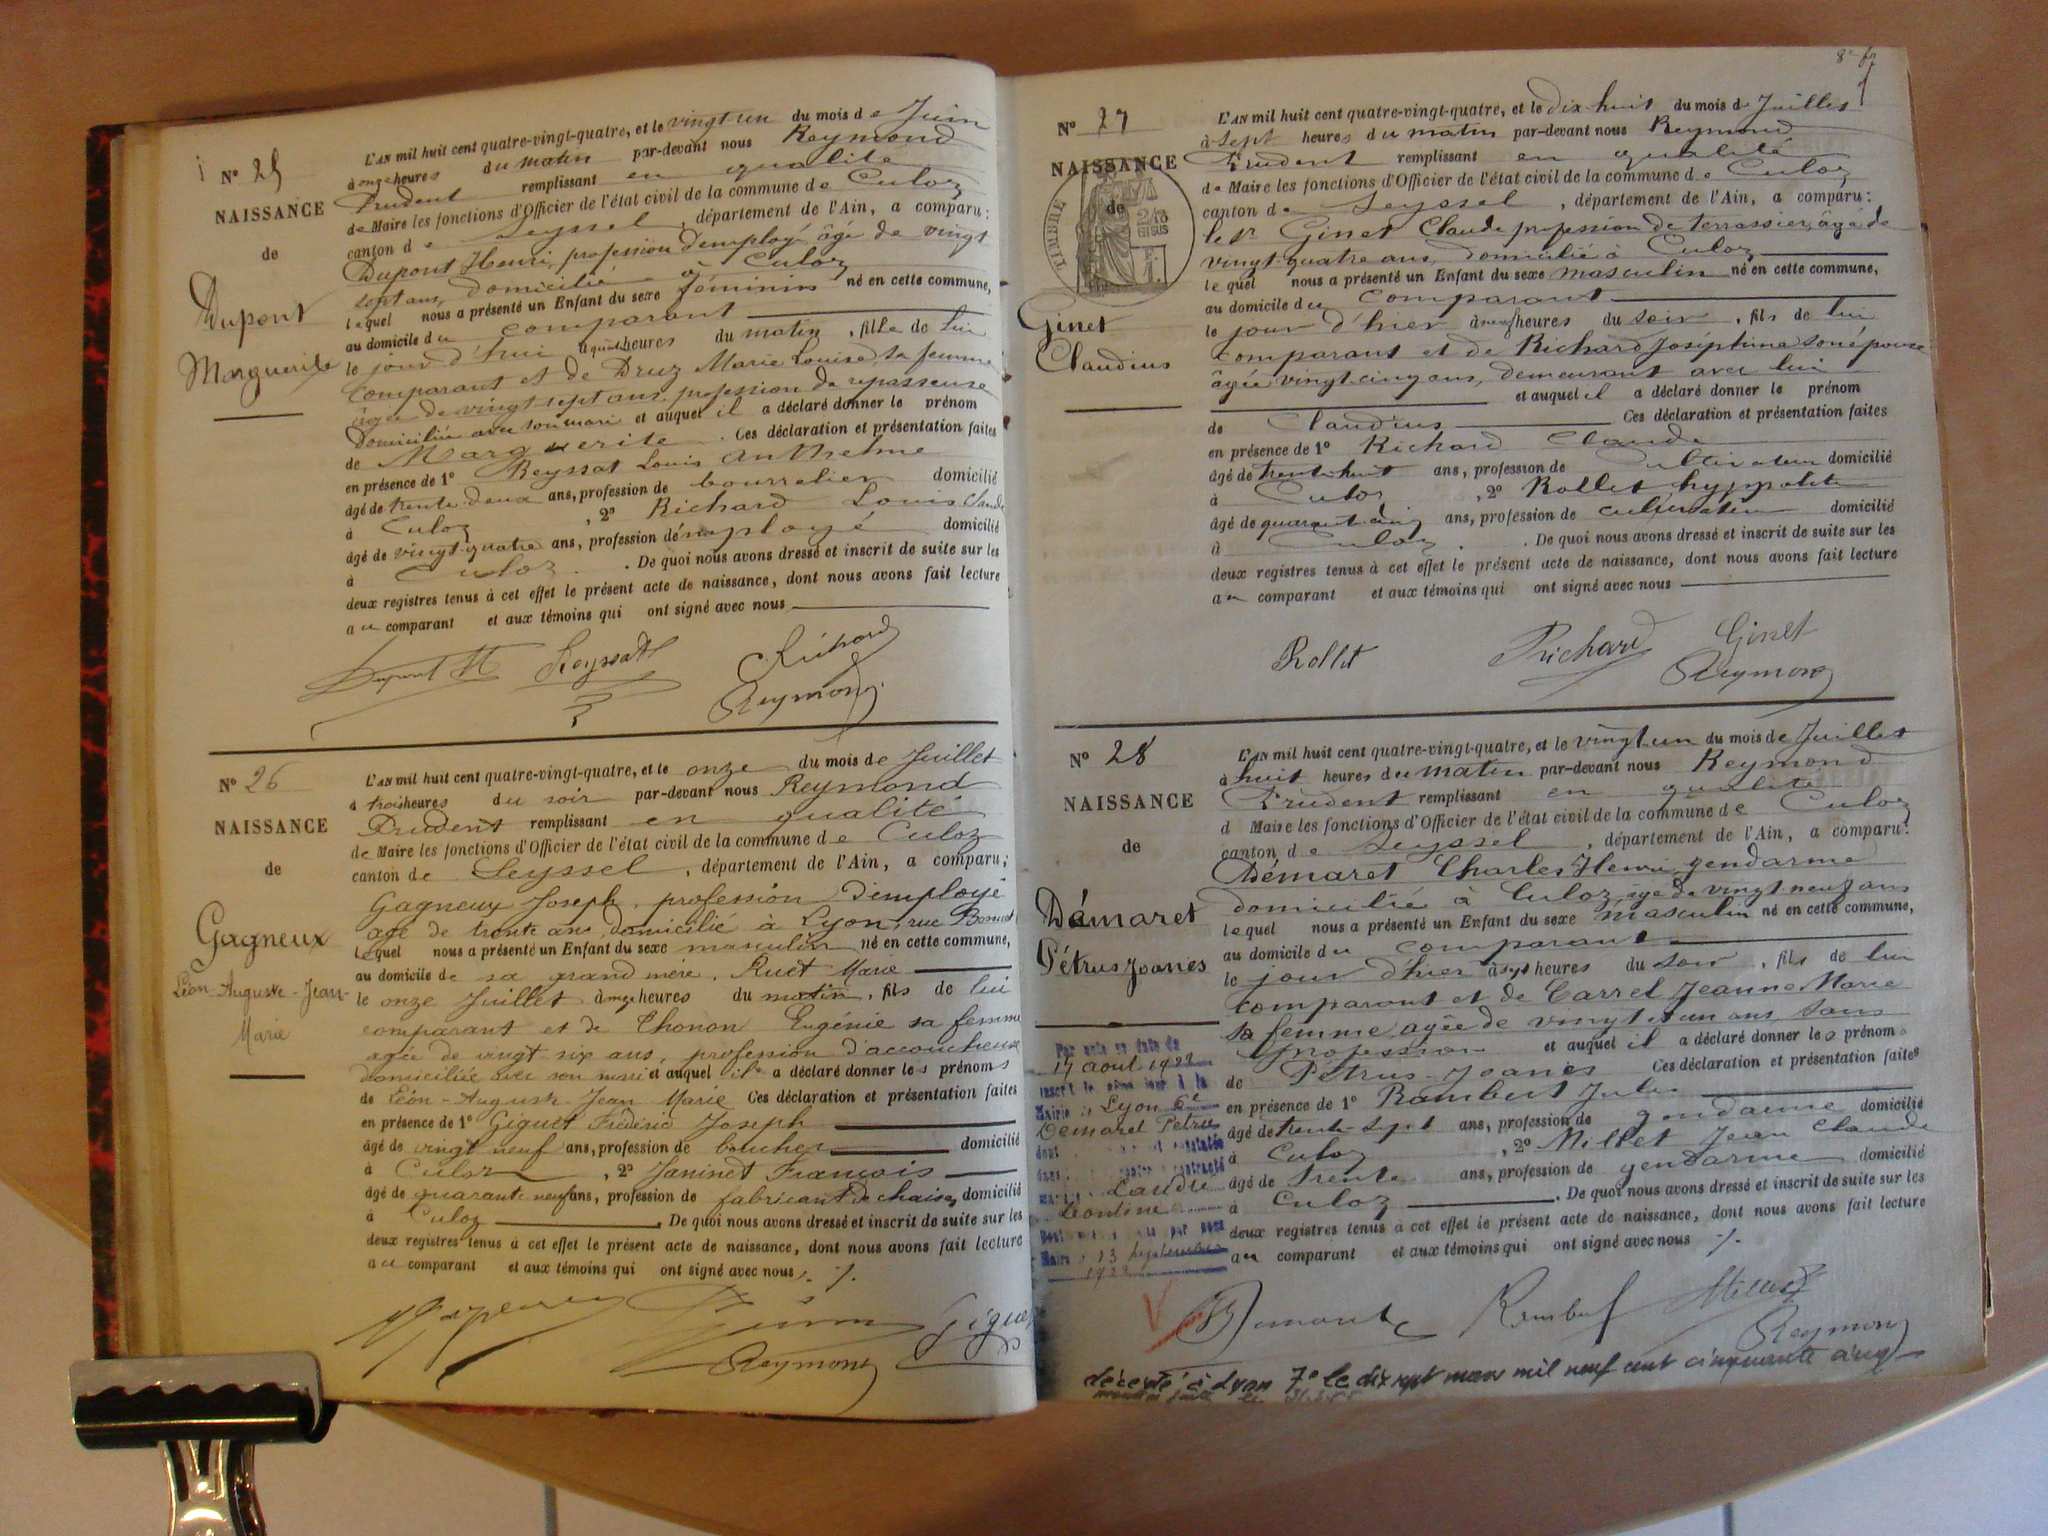 Nº 25
NAISSANCE
de
Dupont
Marguerite
L'AN mil huit cent quatre-vingt-quatre, et le vingt un du mois de Juin
à onze heures du matin par-devant nous Reymond
Prudent remplissant en qualité
de Maire les fonctions d'Officier de l'état civil de la commune de Culoz
canton de Seyssel, département de l'Ain, a comparu:
Dupont Henri, profession d'employé âgé de vingt
sept ans, domicilié à Culoz
lequel nous a présenté un Enfant du sexe féminin né en cette commune,
au domicile du comparant
le jour d'hui à heures du matin, fille de lui
comparant et de Druz Marie Louise sa femme
âgée de vingt sept ans, profession de repasseuse
domiciliée avec son mari et auquel il a déclaré donner le prénom
de Marguerite. Ces déclaration et présentation faites
en présence de 1º Reyssat Louis Anthelme
âgé de trente deux ans, profession de bourrelier domicilié
à Culoz, 2º Richard Louis Claude
âgé de vingt quatre ans, profession d'employé domicilié
à Culoz. De quoi nous avons dressé et inscrit de suite sur les
deux registres tenus à cet effet le présent acte de naissance, dont nous avons fait lecture
au comparant et aux témoins qui ont signé avec nous
Dupont H Reyssat Richard
Reymond
Nº 26
NAISSANCE
de
Gagneux
Léon-Auguste-Jean-
Marie
L'AN mil huit cent quatre-vingt-quatre, et le onze du mois de Juillet
à trois heures du soir par-devant nous Reymond
Prudent remplissant en qualité
de Maire les fonctions d'Officier de l'état civil de la commune de Culoz
canton de Seyssel, département de l'Ain, a comparu;
Gagneux Joseph, profession d'employé
âgé de trente ans domicilié à Lyon, rue
lequel nous a présenté un Enfant du sexe masculin né en cette commune,
au domicile de sa grand mère, Ruet Marie
le onze Juillet à heures du matin, fils de lui
comparant et de Thonon Eugénie sa femme
agée de vingt six ans, profession d'accoucheuse
domiciliée avec son mari et auquel il a déclaré donner les prénoms
de Léon-Auguste Jean Marie Ces déclaration et présentation faites
en présence de 1º Giguet Frédéric Joseph
âgé de vingt neuf ans, profession de boucher domicilié
à Culoz, 2º Janinet François
âgé de quarante neuf ans, profession de fabricant de chaises domicilié
à Culoz. De quoi nous avons dressé et inscrit de suite sur les
deux registres tenus à cet effet le présent acte de naissance, dont nous avons fait lecture
au comparant et aux témoins qui ont signé avec nous
Giguet
Reymond
Nº 27
NAISSANCE
de
TIMBRE
Ginet
Claudius
L'AN mil huit cent quatre-vingt-quatre, et le dix huit du mois de Juillet
à sept heures du matin par-devant nous Reymond
Prudent remplissant en qualité
de Maire les fonctions d'Officier de l'état civil de la commune de Culoz
canton de Seyssel, département de l'Ain, a comparu:
le Sr Ginet Claude profession de terrassier, âgé de
vingt quatre ans, domicilié à Culoz
lequel nous a présenté un Enfant du sexe masculin né en cette commune,
au domicile du comparant
le jour d'hier à neuf heures du soir, fils de lui
comparant et de Richard Joséphine son épouse
âgée vingt cinq ans, demeurant avec lui
et auquel il a déclaré donner le prénom
de Claudius Ces déclaration et présentation faites
en présence de 1º Richard Claude
âgé de trente huit ans, profession de Cultivateur domicilié
à Culoz, 2º Rollet hyppolite
âgé de quarante cinq ans, profession de cultivateur domicilié
à Culoz. De quoi nous avons dressé et inscrit de suite sur les
deux registres tenus à cet effet le présent acte de naissance, dont nous avons fait lecture
au comparant et aux témoins qui ont signé avec nous
Rollet Richard Ginet
Reymond
Nº 28
NAISSANCE
de
Démaret
Pétrus Joanès
Par acte en date du
17 août 1922
inscrit le même jour à la
Mairie de Lyon 6e
Demaret Pétrus
dont
dans
Laudre
Léontine
par nous
Maire 13 septembre
1922
L'AN mil huit cent quatre-vingt-quatre, et le vingt un du mois de Juillet
à huit heures du matin par-devant nous Reymond
Prudent remplissant en qualité
d Maire les fonctions d'Officier de l'état civil de la commune de Culoz
canton de Seyssel, département de l'Ain, a comparu:
Démaret Charles Henri gendarme
domicilié à Culoz, âgé de vingt neuf ans
lequel nous a présenté un Enfant du sexe masculin né en cette commune,
au domicile du comparant
le jour d'hier à sept heures du soir, fils de lui
comparant et de Carrel Jeanne Marie
sa femme agée de vingt et un ans, sans
profession et auquel il a déclaré donner les prénoms
de Pétrus-Joanès Ces déclaration et présentation faites
en présence de 1º Rambert Jules
âgé de trente-sept ans, profession de gendarme domicilié
à Culoz, 2º Millet Jean Claude
âgé de trente ans, profession de gendarme domicilié
à Culoz. De quoi nous avons dressé et inscrit de suite sur les
deux registres tenus à cet effet le présent acte de naissance, dont nous avons fait lecture
au comparant et aux témoins qui ont signé avec nous
Rambert Millet
Reymond
décédé à Lyon 7e le dix sept mars mil neuf cent cinquante cinq